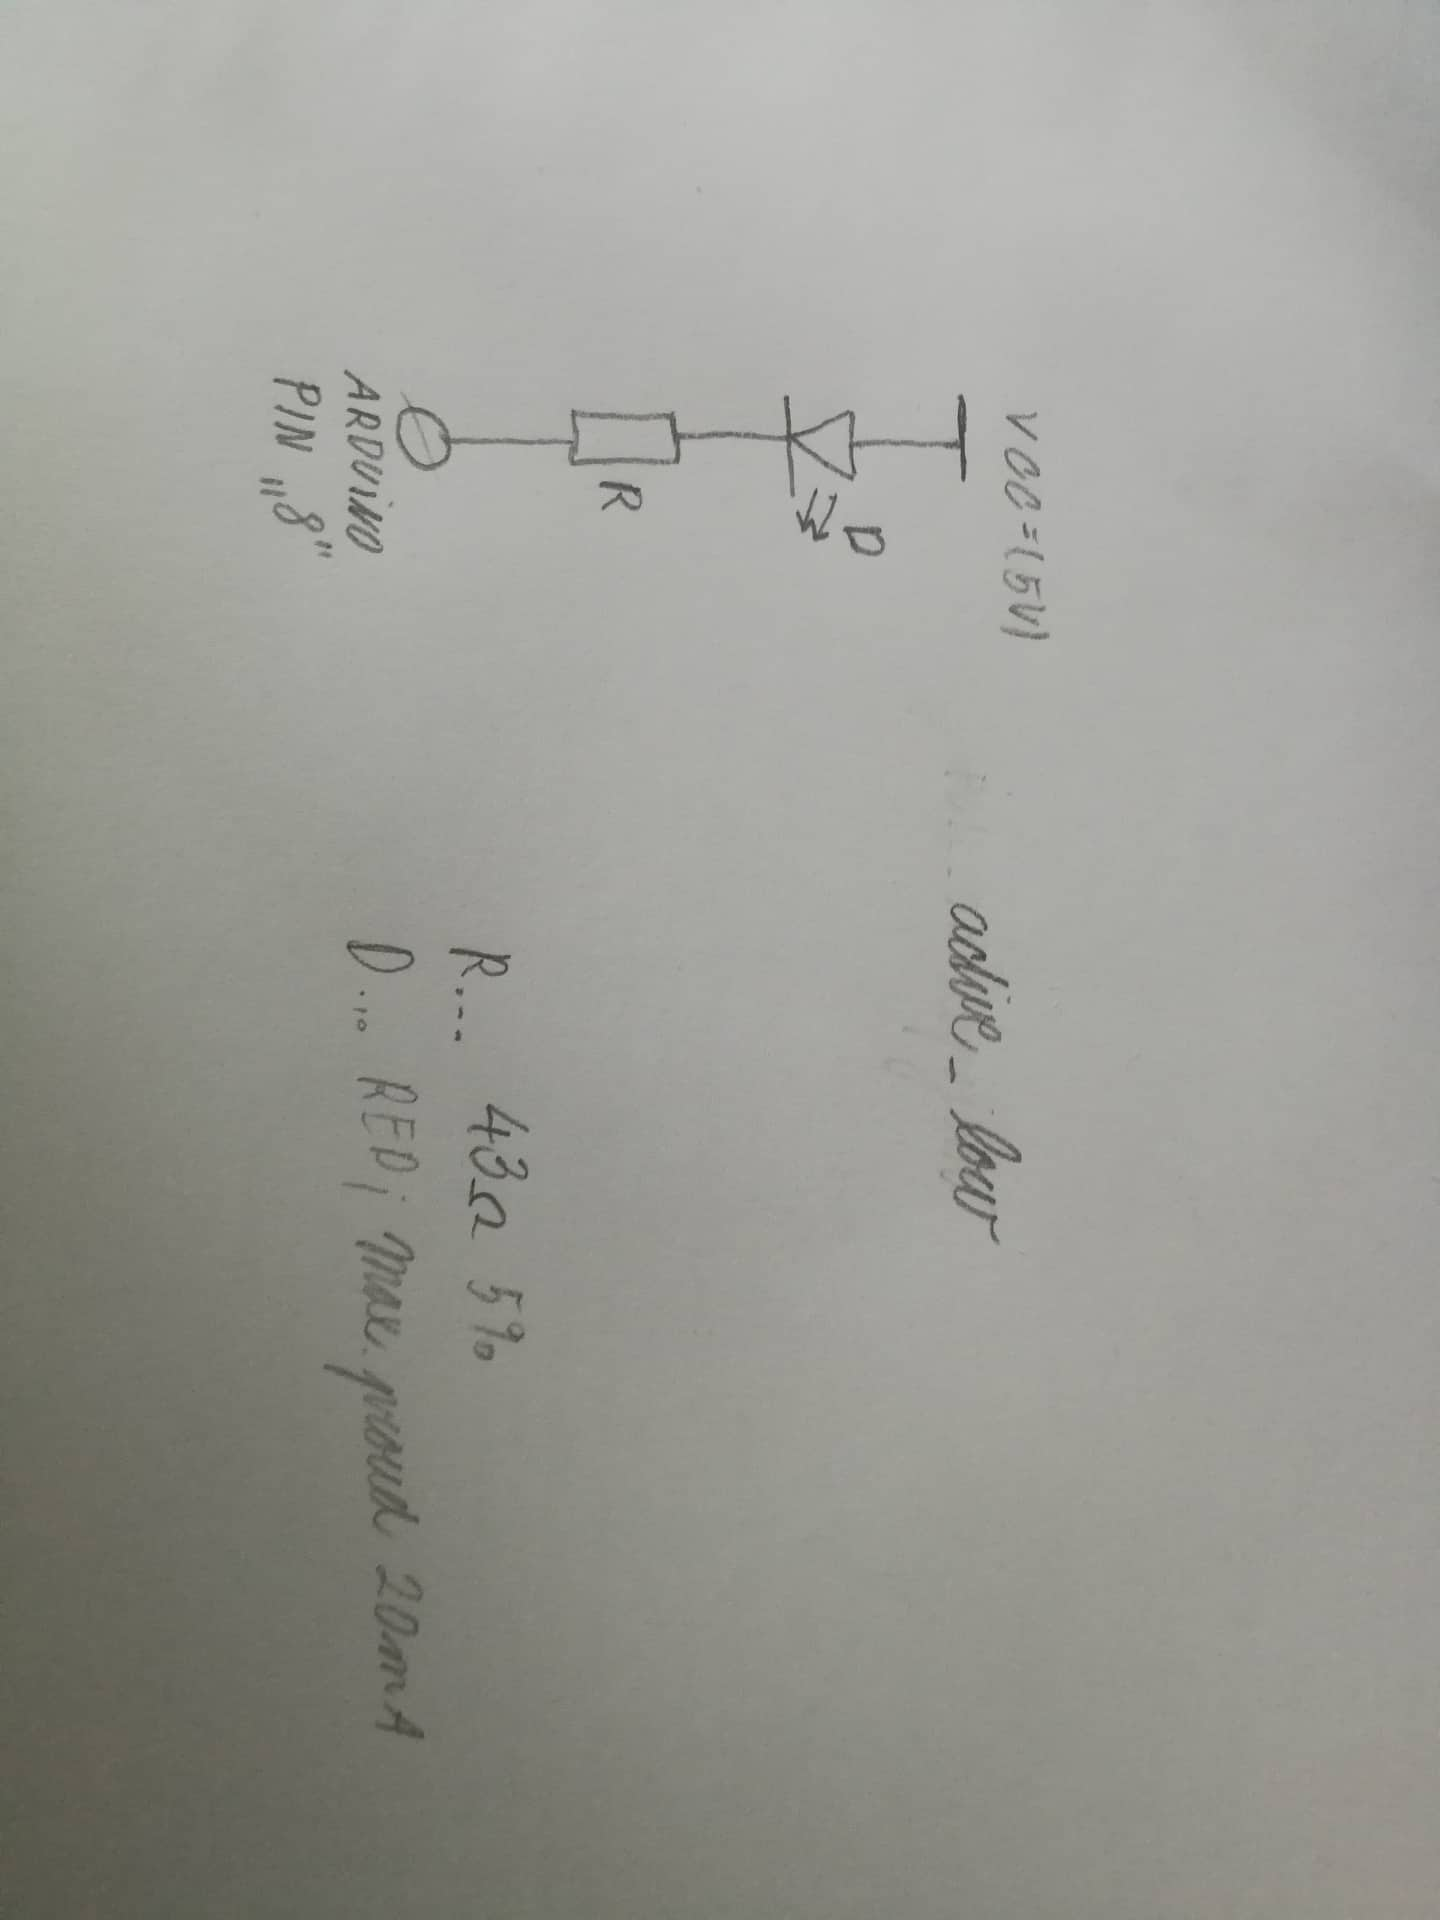 VCC=(5V)
D
R
ARDUINO
PIN „8"
active-low
R... 43Ω 5%
D... RED; max. proud 20mA